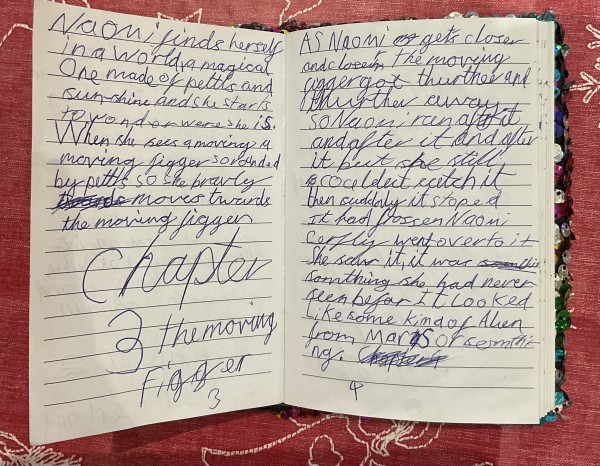 Naomi finds herself
in a world, a magical
One made of peths and
sunshine and she starts
to yonder were she is.
When she sees a moving a
moving figger sorounded
by petths so she bravly
moves twards
the moving figger
Chapter
3 the moving
Figger
3
AS Naomi gets closer
and closer, the moving
figger got thurther and
thurther away
so Naomi ran aft it
and after it and after
it but she still
cocoldent catch it
then suddnly it stoped
It had frossen Naomi
cerflly went over to it
She saw it, it was
something she had never
seen befor It looked
Like some kind of Alien
from Mars or somthi
ng.
4